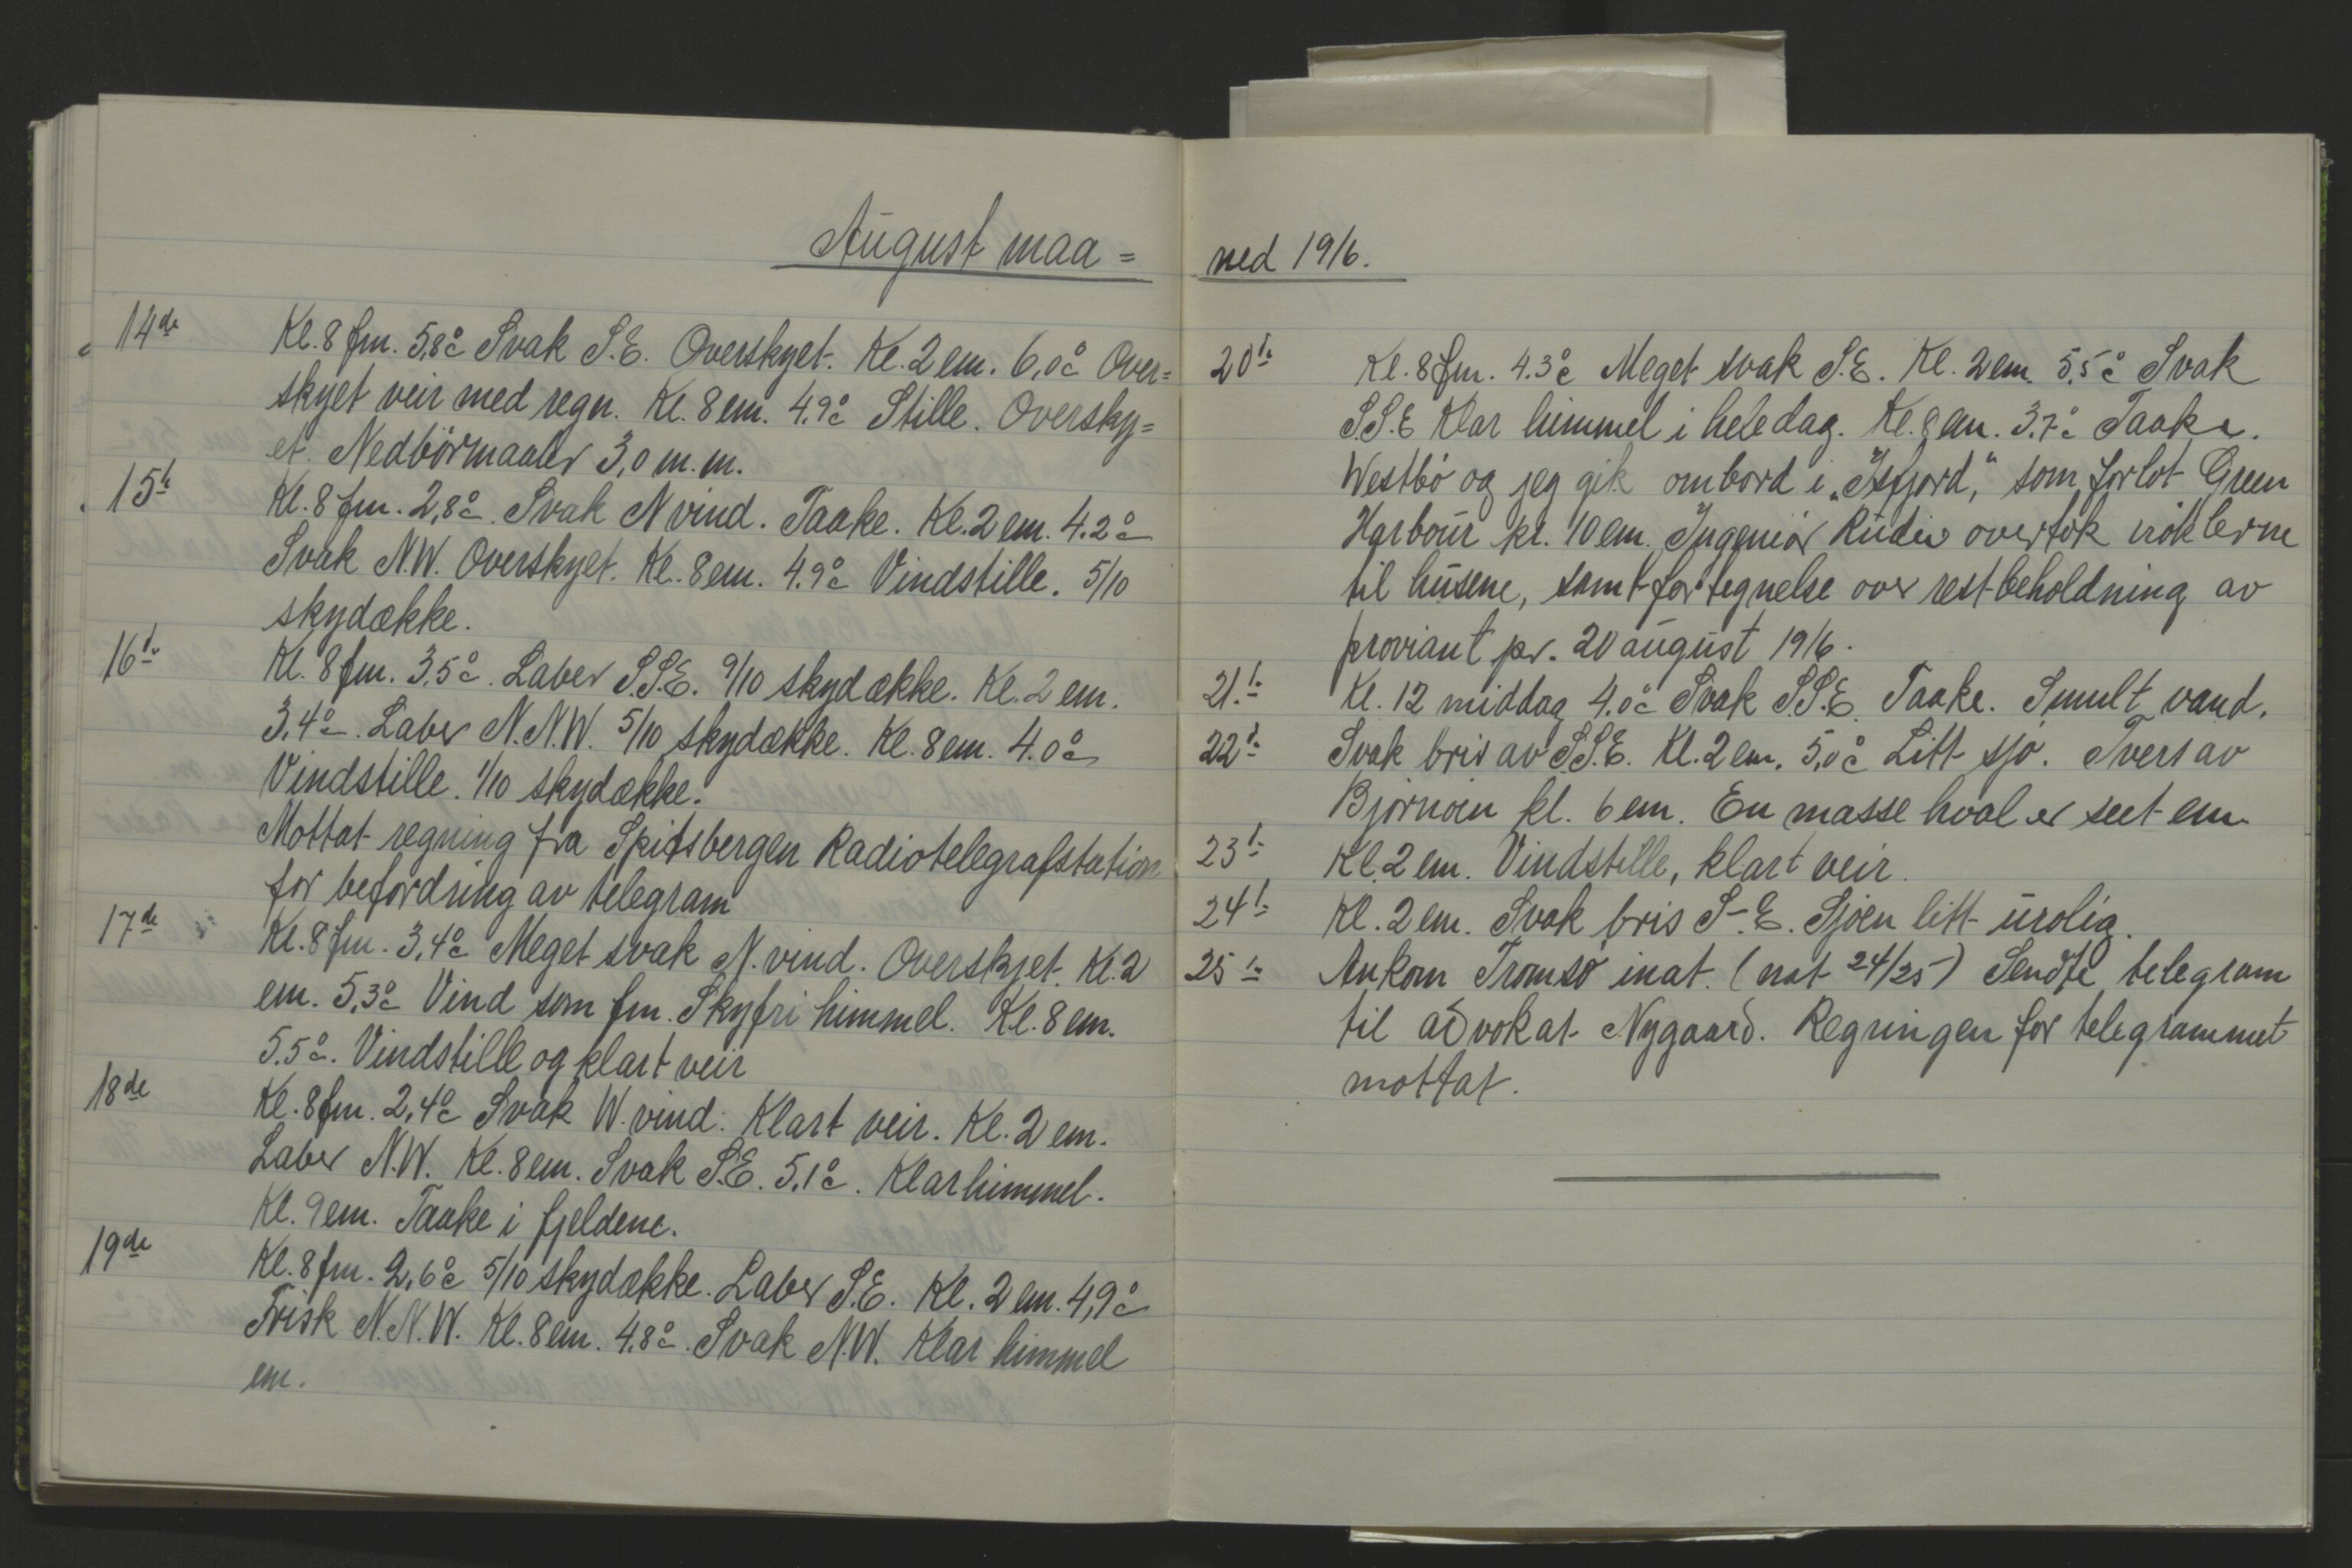 August maa=
14de Kl. 8 fm. 5,8°c Svak S.E. Overskyet. Kl. 2 em. 6,0°c Over=
skyet veir med regn. Kl. 8 em. 4.9°c Stille. Oversky=
et. Nedbörmaaler 3,0 m.m.
15de Kl. 8 fm. 2,8°c. Svak N vind. Taake. Kl. 2 em. 4.2°c
Svak N.W. Overskyet. Kl. 8 em. 4.9°c Vindstille. 5/10
skydække.
16de Kl. 8 fm. 3,5°c. Laber S.S.E. 9/10 skydække. Kl. 2 em.
3,4°c. Laber N.N.W. 5/10 skydække. Kl. 8 em. 4.0°c
Vindstille. 1/10 skydække.
Mottat regning fra Spitsbergen Radiotelegrafstation
for befordring av telegram
17de Kl. 8 fm. 3,4°c Meget svak N. vind. Overskyet. Kl. 2
em. 5,3°c Vind som fm. Skyfri himmel. Kl. 8 em.
5.5°c. Vindstille og klart veir
18de Kl. 8 fm. 2,4°c Svak W. vind. Klart veir. Kl. 2 em.
Laber N.W. Kl. 8 em. Svak S.E. 5,1°c. Klar himmel.
Kl. 9 em. Taake i fjeldene.
19de Kl. 8 fm. 2,6°c 5/10 skydække. Laber S.E. Kl. 2 em. 4,9°c
Frisk N.N.W. Kl. 8 em. 4.8°c. Svak N.W. Klar himmel
em.
ned 1916.
20de Kl. 8 fm. 4.3°c Meget svak S.E. Kl. 2 em. 5,5°c Svak
S.S.E Klar himmel i hele dag. Kl. 8 em. 3.7°c Taake.
Westbö og jeg gik ombord i „Isfjord," som forlot Green
Harbour kl. 10 em. Ingeniör overtok nöklerne
til husene, samt fortegnelse over restbeholdning av
proviant pr. 20 august 1916.
21de Kl. 12 middag 4.0°c Svak S.S.E. Taake. Smult vand.
22de Svak bris av S.S.E. Kl. 2 em. 5,0°c Litt sjö. Tvers av
Björnöen kl. 6 em. En masse hval er seet em.
23de Kl. 2 em. Vindstille, klart veir.
24de Kl. 2 em. Svak bris S-E. Sjöen litt urolig.
25de Ankom Tromsö inat. (nat 24/25) Sendte telegram
til advokat Nygaard. Regningen for telegrammet
mottat.